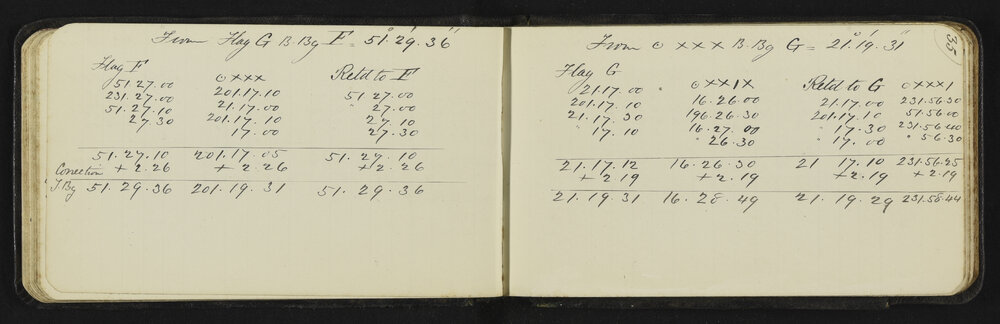 From Flag G B. Bg F = 51°.29'.36"
Flag F ○XXX Retd to F
51.27.00 201.17.10 51.27.00
231.27.00 21.17.00 " 27.00
51.27.10 201.17.10 27.10
27.30 17.00 27.30
51.27.10 201.17.05 51.27.10
Correction +2.26 +2.26 +2.26
T. Bg 51.29.36 201.19.31 51.29.36
35
From ○ XXX B. Bg G = 21°.19'.31"
Flag G ○XXIX Retd to G ○XXXI
21.17.00 16.26.00 21.17.00 231.56.30
201.17.10 196.26.30 201.17.10 51.56.00
21.17.30 16.27.00 " 17.30 231.56.40
" 17.10 " 26.30 " 17.00 " 56.30
21.17.12 16.26.30 21 17.10 231.56.25
+2.19 +2.19 +2.19 +2.19
21.19.31 16.28.49 21.19.29 231.58.44